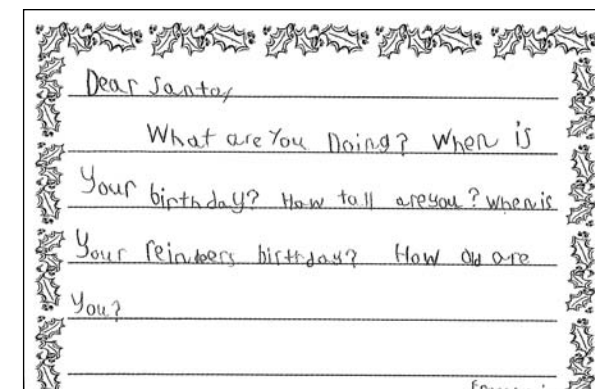 Dear Santa,
What are You Doing? When is
Your birthday? How tall are you? When is
Your reindeers birthday? How old are
You?